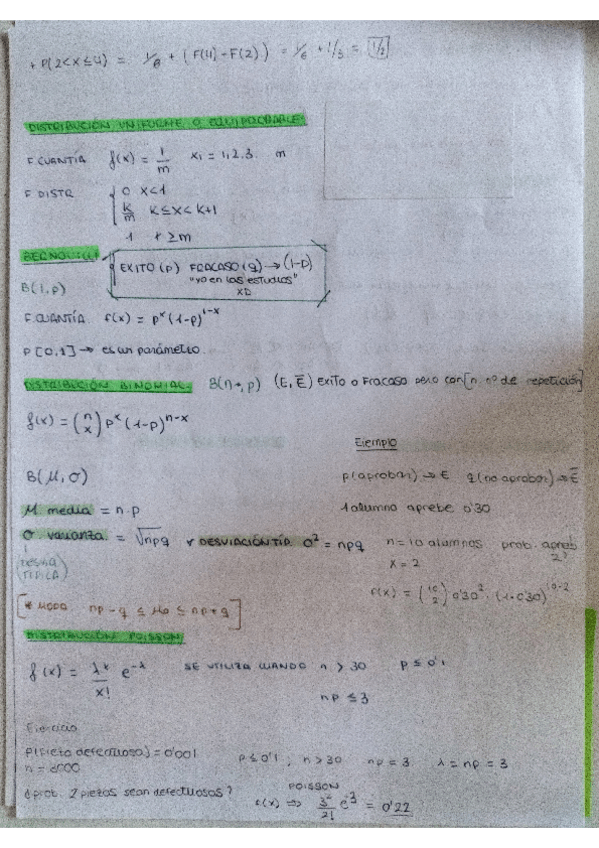 + P(2<x≤4) = 1/6 + (F(4)-F(2)) = 1/6 + 1/3 = 1/2
DISTRIBUCIÓN UNIFORME O EQUIPROBABLE:
F CUANTÍA f(x) = 1/m xi = 1,2,3. m
F DISTR { 0 x<1
k/m k≤x<k+1
1 x≥m
BERNOUILLI
EXITO (p) FRACASO (q) → (1-p)
"yo en los estudios"
XD
B(1,p)
F. CUANTÍA f(x) = p^x (1-p)^1-x
P [0,1] → es un parámetro.
DISTRIBUCIÓN BINOMIAL. B(n, p) (E, E̅) exito o Fracaso pero con [n nº de repetición]
f(x) = (n x) p^x (1-p)^n-x
Ejemplo
B(μ, σ)
p(aprobar) → E q(no aprobar) → E̅
μ media = n.p
1 alumno aprebe 0'30
σ varianza = √npq y DESVIACIÓN TÍP. σ² = npq
n = 10 alumnos prob. aprob. 2?
(TÍPICA)
x = 2
f(x) = (10 2) 0'30² · (1-0'30)^10-2
[* MODA np - q ≤ Mo ≤ np + q]
DISTRIBUCIÓN POISSON
f(x) = λ^x/x! e^-λ SE UTILIZA CUANDO n > 30 p ≤ 0'1
np ≤ 3
Ejercicio
P(pieza defectuosa) = 0'001
n = 3000
p ≤ 0'1, n > 30 np = 3 λ = np = 3
¿prob. 2 piezas sean defectuosas?
POISSON
f(x) => 3²/2! e^-3 = 0'22